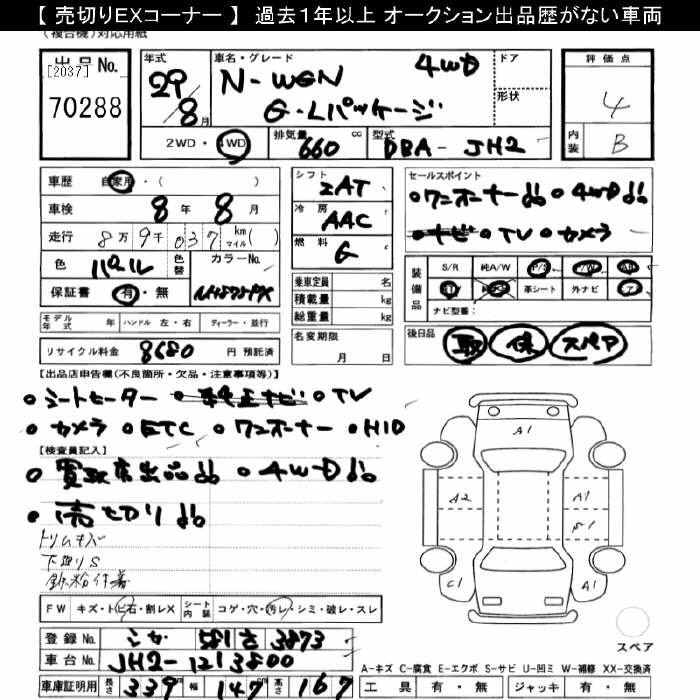 【 売切りEXコーナー 】 過去１年以上 オークション出品歴がない車両
(複合機)対応用紙
出品No.
[2037]
70288
年式 29 8月
車名・グレード N-WGN 4WD
G・Lパッケージ
ドア
形状
評価点 4
内装 B
2WD・4WD 排気量 660 cc 型式 DBA-JH2
車歴 自家用・( )
車検 8年 8月
走行 8万9千037 km マイル( )
色 パール 色替 カラーNo.
保証書 有・無
シフト 2AT
冷房 AAC
燃料 G
乗車定員 名
積載量 kg
総重量 kg
名変期限 月 日
セールスポイント
•ワンオーナー •4WD
•ナビ •TV •カメラ
装備品 S/R 純A/W P/S P/W AB
ETV 革シート 外ナビ
ナビ型番:
モデル年式 年 ハンドル 左・右 ディーラー・並行
リサイクル料金 8680 円 預託済
後日品 取 保 スペア
【出品店申告欄(不良箇所・欠品・注意事項等)】
•シートヒーター •純正ナビ •TV
•カメラ •ETC •ワンオーナー •HID
【検査員記入】
•買取店出品 •4WD
•売切り
トリムキズ
下廻りS
鉄粉付着
A1
A2
A1
C1
A1
FW キズ・トビ石・割レX シート内装 コゲ・穴・汚レ・シミ・破レ・スレ
登録No. 581 3873
車台No. JH2-1213800
車庫証明用 長さ 339 幅 147 高さ 167
スペア
A-キズ C-腐食 E-エクボ S-サビ U-凹ミ W-補修 XX-交換済
工具 有・無 ジャッキ 有・無